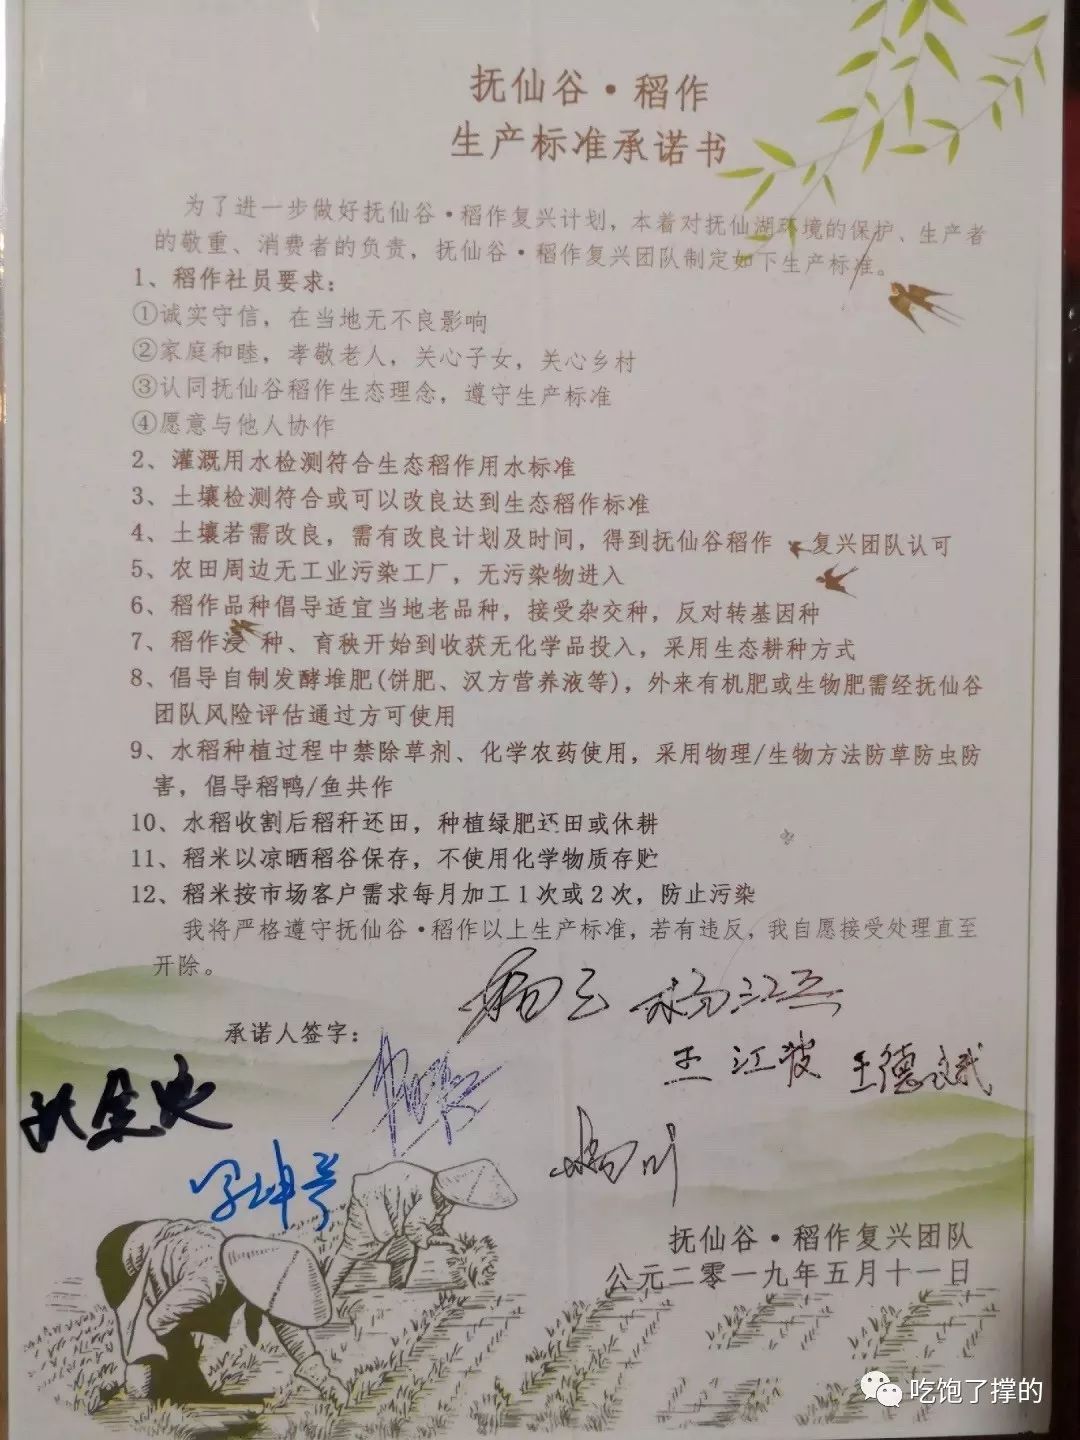 抚仙谷·稻作
生产标准承诺书
为了进一步做好抚仙谷·稻作复兴计划，本着对抚仙湖环境的保护、生产者
的敬重、消费者的负责，抚仙谷·稻作复兴团队制定如下生产标准。
1、稻作社员要求：
①诚实守信，在当地无不良影响
②家庭和睦，孝敬老人，关心子女，关心乡村
③认同抚仙谷稻作生态理念，遵守生产标准
④愿意与他人协作
2、灌溉用水检测符合生态稻作用水标准
3、土壤检测符合或可以改良达到生态稻作标准
4、土壤若需改良，需有改良计划及时间，得到抚仙谷稻作 复兴团队认可
5、农田周边无工业污染工厂，无污染物进入
6、稻作品种倡导适宜当地老品种，接受杂交种，反对转基因种
7、稻作浸 种、育秧开始到收获无化学品投入，采用生态耕种方式
8、倡导自制发酵堆肥(饼肥、汉方营养液等)，外来有机肥或生物肥需经抚仙谷
团队风险评估通过方可使用
9、水稻种植过程中禁除草剂、化学农药使用，采用物理/生物方法防草防虫防
害，倡导稻鸭/鱼共作
10、水稻收割后稻秆还田，种植绿肥还田或休耕
11、稻米以凉晒稻谷保存，不使用化学物质存贮
12、稻米按市场客户需求每月加工1次或2次，防止污染
我将严格遵守抚仙谷·稻作以上生产标准，若有违反，我自愿接受处理直至
开除。
承诺人签字：
王江波 王德斌
抚仙谷·稻作复兴团队
公元二零一九年五月十一日
吃饱了撑的